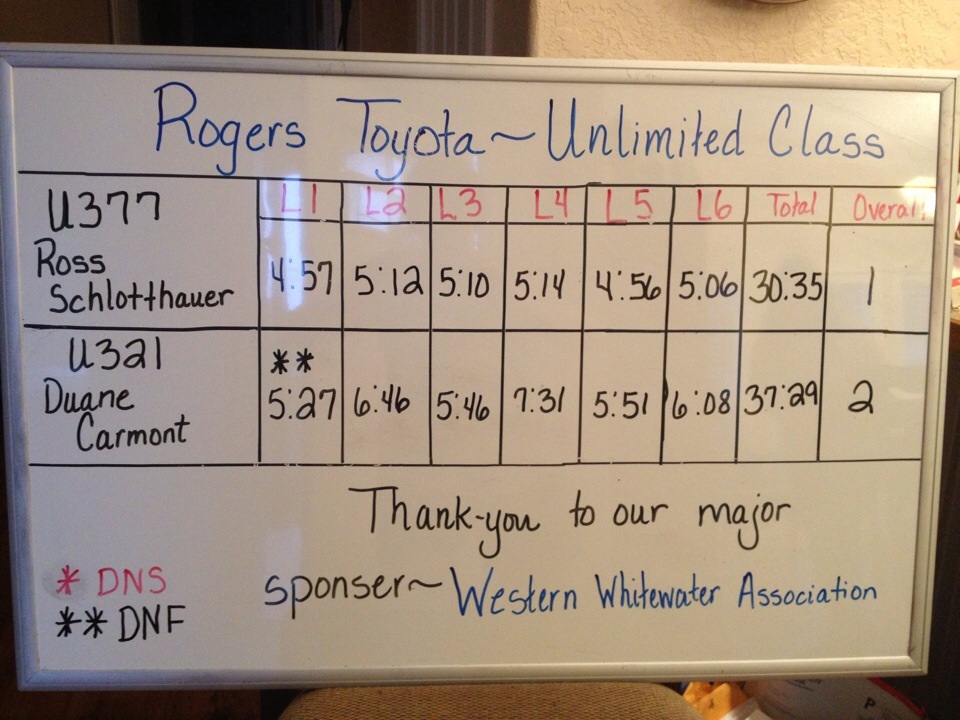 Rogers Toyota ~ Unlimited Class
U377 L1 L2 L3 L4 L5 L6 Total Overall
Ross
Schlotthauer 4:57 5:12 5:10 5:14 4:56 5:06 30:35 1
U321 **
Duane
Carmont 5:27 6:46 5:46 7:31 5:51 6:08 37:29 2
Thank-you to our major
* DNS sponser~ Western Whitewater Association
** DNF
P